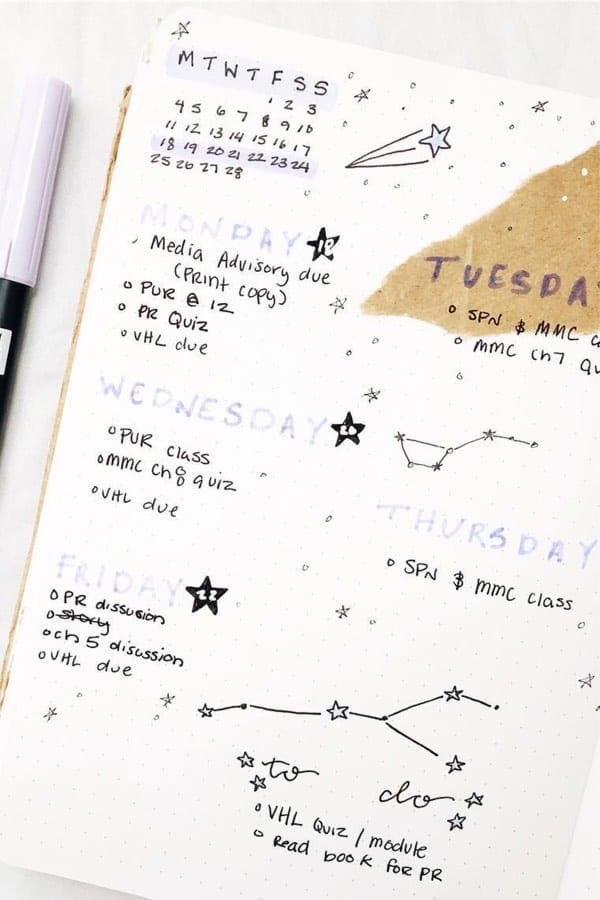 M T W T F S S
1 2 3
4 5 6 7 8 9 10
11 12 13 14 15 16 17
18 19 20 21 22 23 24
25 26 27 28
MONDAY
Media Advisory due
(Print copy)
PUR @ 12
PR Quiz
VHL due
TUESDA
SPN $ MMC
MMC Ch7 Qu
WEDNESDAY 20
PUR class
MMC Ch 8 quiz
VHL due
THURSDAY
SPN $ MMC class
FRIDAY 22
PR dissusion
story
Ch 5 disussion
VHL due
to do
VHL Quiz / module
Read book for PR